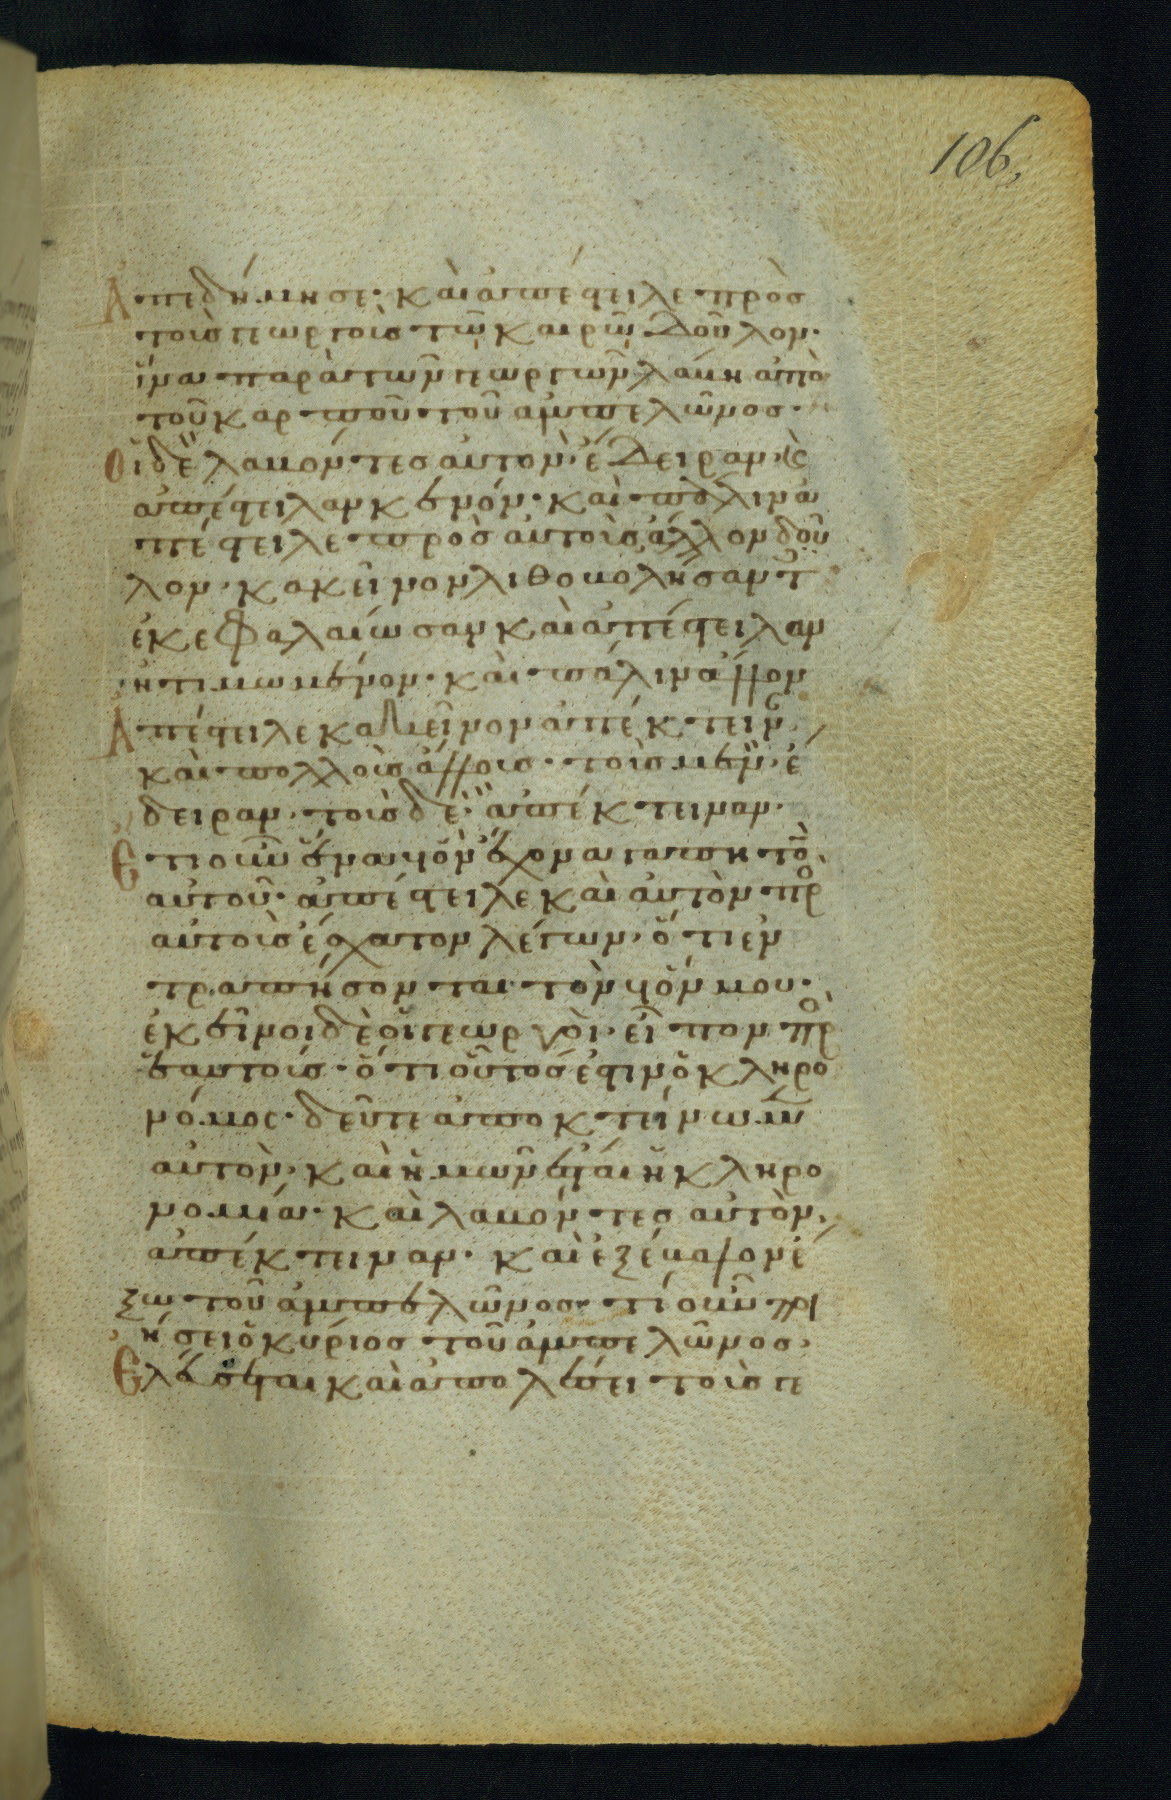 106,
Ἀπεδήμησε· καὶ ἀπέστειλε πρὸς
τοὺς γεωργοὺς τῶ καιρῶ δοῦλον·
ἵνα παρὰ τῶν γεωργῶν λάβη ἀπὸ
τοῦ καρποῦ τοῦ ἀμπελῶνος·
Οἱ δὲ λαβόντες αὐτὸν ἔδειραν κ(αὶ)
ἀπέστειλαν κενόν· καὶ πάλιν ἀ
πέστειλε πρὸς αὐτοὺς ἄλλον δοῦ
λον· κακεῖνον λιθοβολήσαντ(ες)
ἐκεφαλαίωσαν καὶ ἀπέστειλαν
ἠτιμωμένον· καὶ πάλιν ἄλλον
Ἀπέστειλε κακεῖνον ἀπέκτειν(αν)
καὶ πολλοὺς ἄλλους· τοὺς μὲν ἔ
δειραν· τοὺς δὲ ἀπέκτειναν·
Ἔτι οὖν ἕνα υἱὸν ἔχον ἀγαπητὸ(ν)
αὐτοῦ· ἀπέστειλε καὶ αὐτὸν πρ(ὸς)
αὐτοὺς ἔσχατον λέγων· ὅτι ἐν
τραπήσονται τὸν υἱόν μου·
ἐκεῖνοι δὲ οἱ γεωργοὶ· εἶπον πρ(ὸς)
ἑαυτοὺς· ὅτι οὗτός ἐστιν ὁ κληρο
νόμος· δεῦτε ἀποκτείνωμ(εν)
αὐτὸν· καὶ ἡμῶν ἔσται ἡ κληρο
νομία· καὶ λαβόντες αὐτὸν,
ἀπέκτειναν· καὶ ἐξέβαλον ἔ
ξω τοῦ ἀμπελῶνος· τί οὖν ποι
ήσει ὁ κύριος τοῦ ἀμπελῶνος·
Ἐλεύσεται καὶ ἀπολέσει τοὺς γε